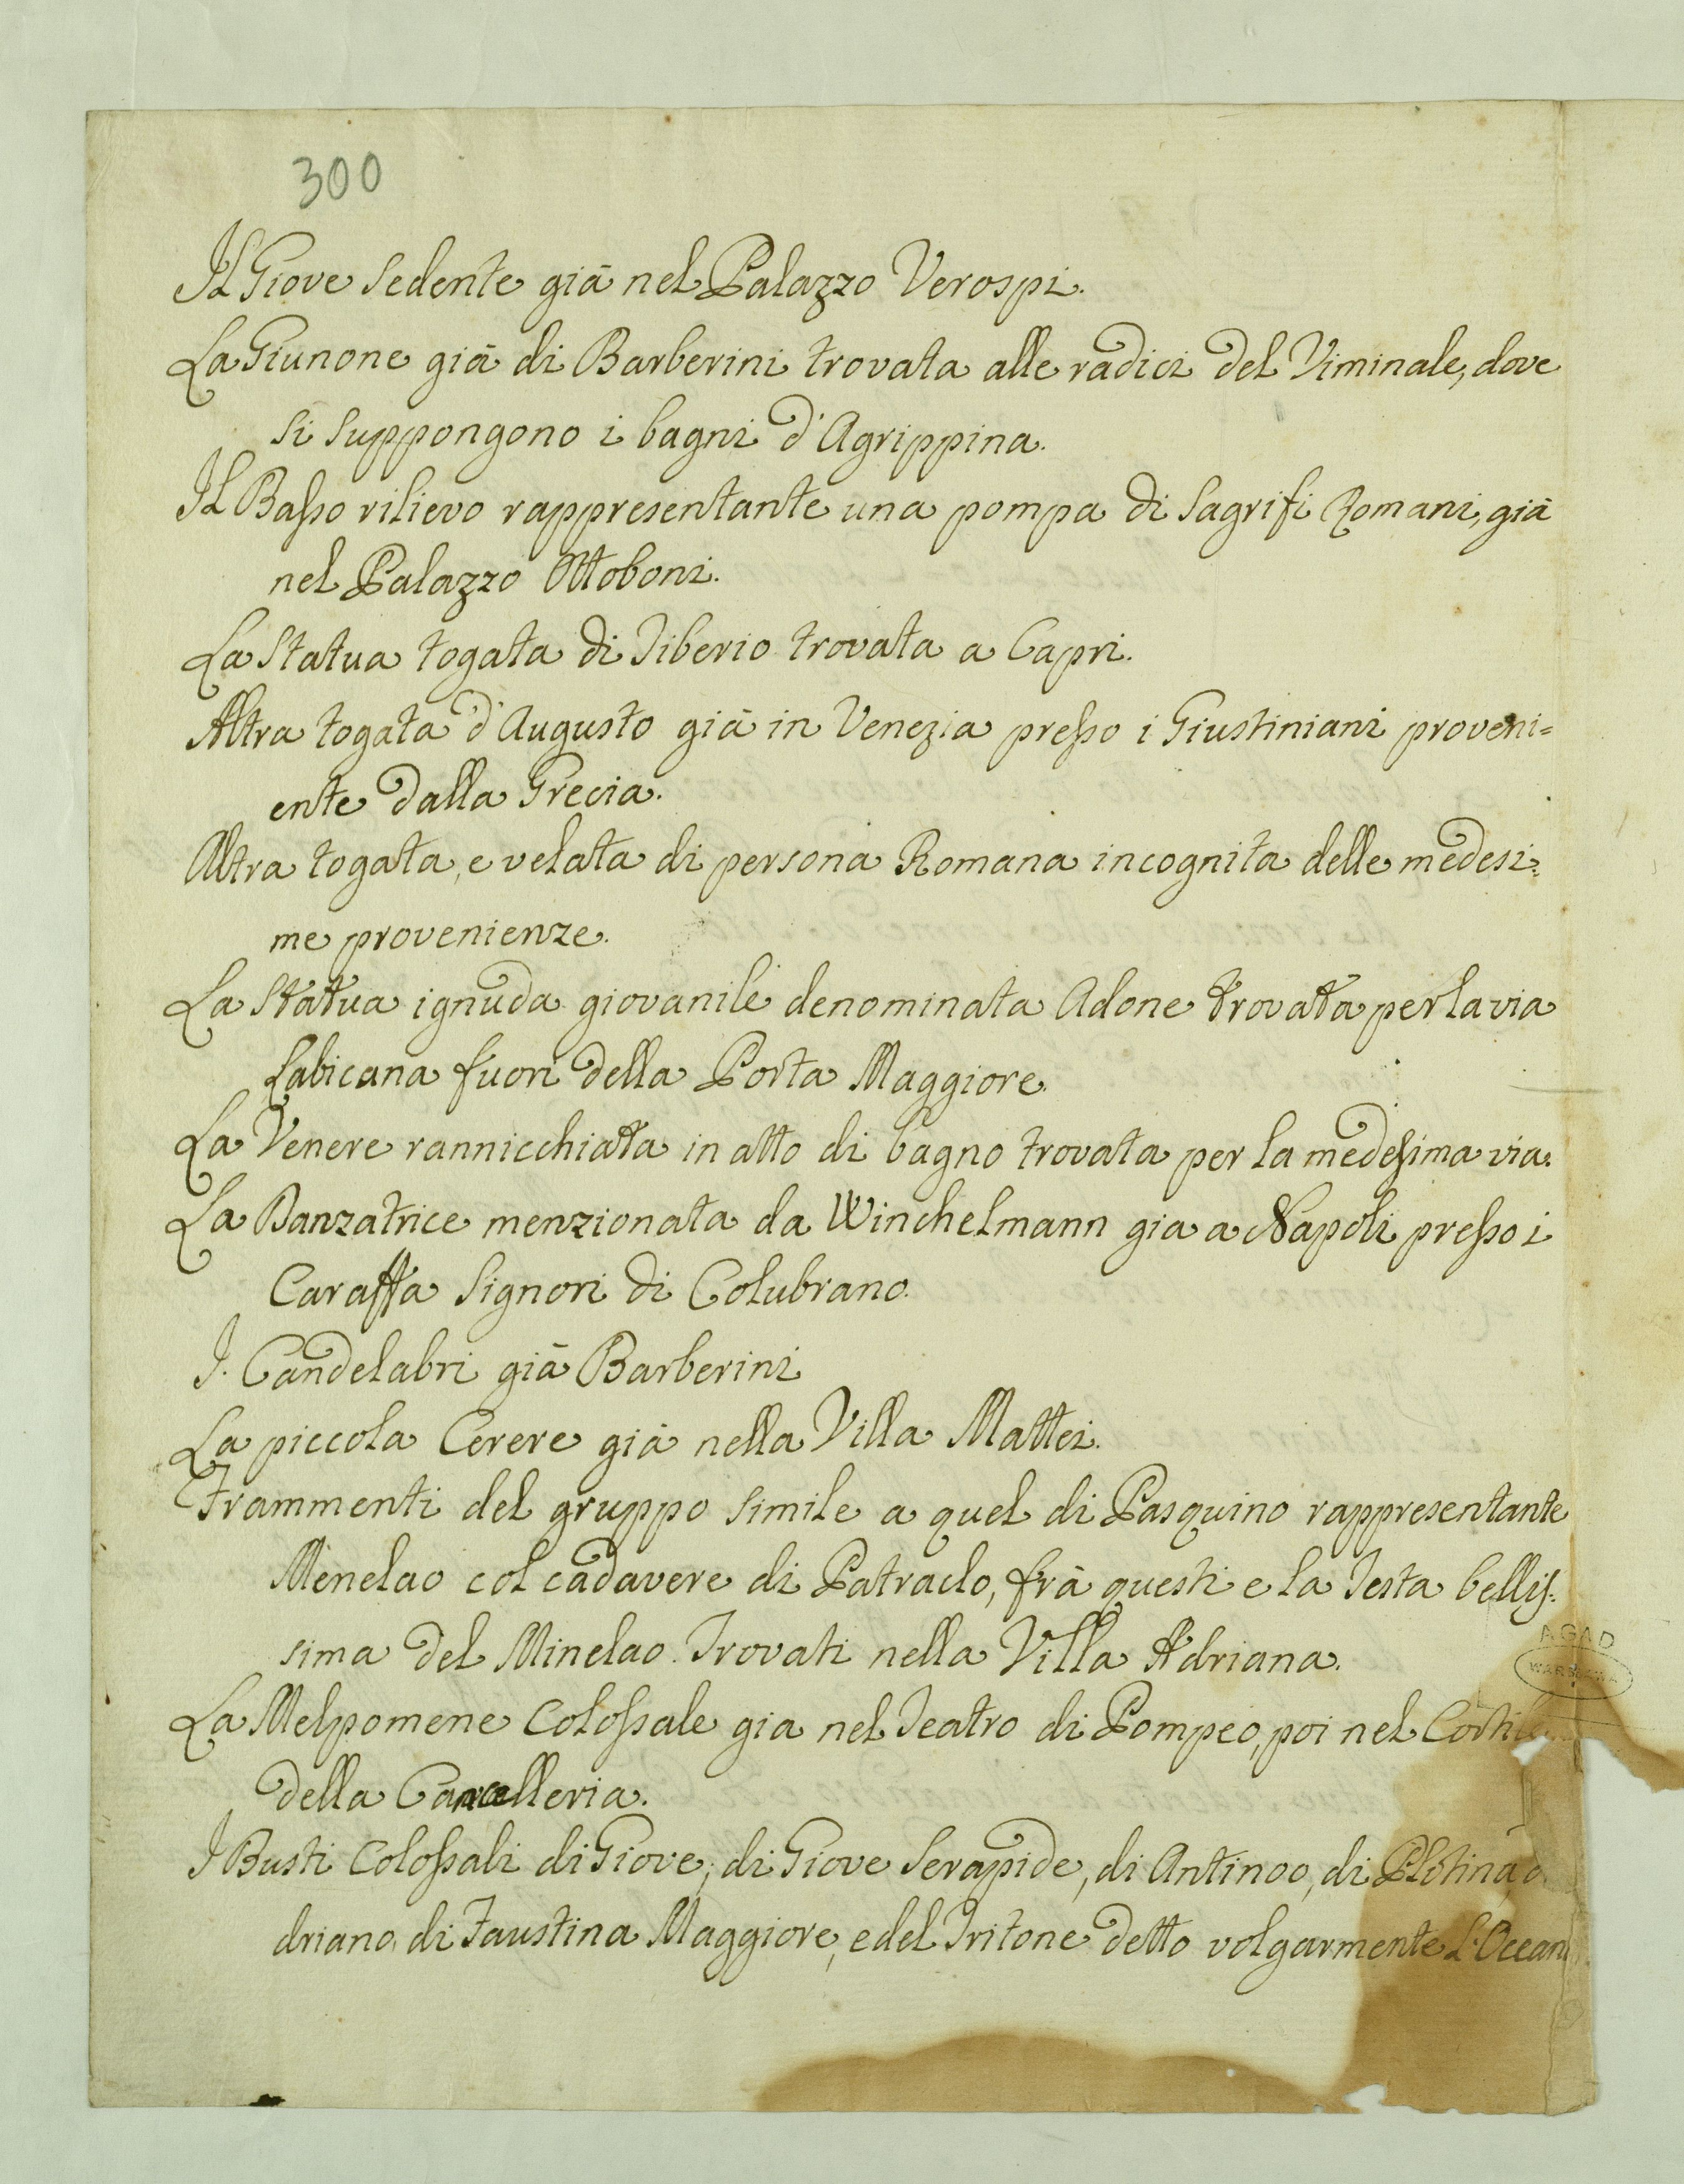 300
Il Giove sedente già nel Palazzo Verospi.
La Giunone già di Barberini trovata alle radici del Viminale, dove
si suppongono i bagni d'Agrippina.
Il Basso rilievo rappresentante una pompa di Sagrifi Romani, già
nel Palazzo Ottoboni.
La Statua togata di Tiberio trovata a Capri.
Altra togata d'Augusto già in Venezia presso i Giustiniani proveni=
ente dalla Grecia.
Altra togata, e velata di persona Romana incognita delle medesi=
me provenienze.
La Statua ignuda giovanile denominata Adone trovata per la via
Labicana fuori della Porta Maggiore.
La Venere rannicchiata in atto di bagno trovata per la medesima via.
La Danzatrice menzionata da Winchelmann gia a Napoli presso i
Caraffa Signori di Colubrano.
I. Candelabri già Barberini
La piccola Cerere già nella Villa Mattei.
Frammenti del gruppo simile a quel di Pasquino rappresentante
Menelao col cadavere di Patraclo, frà questi e la Testa bellis=
sima del Minelao. Trovati nella Villa Adriana.
La Melpomene Colossale gia nel Teatro di Pompeo, poi nel Cortile
della Cancelleria.
I Busti Colossali di Giove, di Giove Serapide, di Antinoo, di Plotina,
driano, di Faustina Maggiore, e del Tritone detto volgarmente L'Ocean
AGAD
WARSZAWA